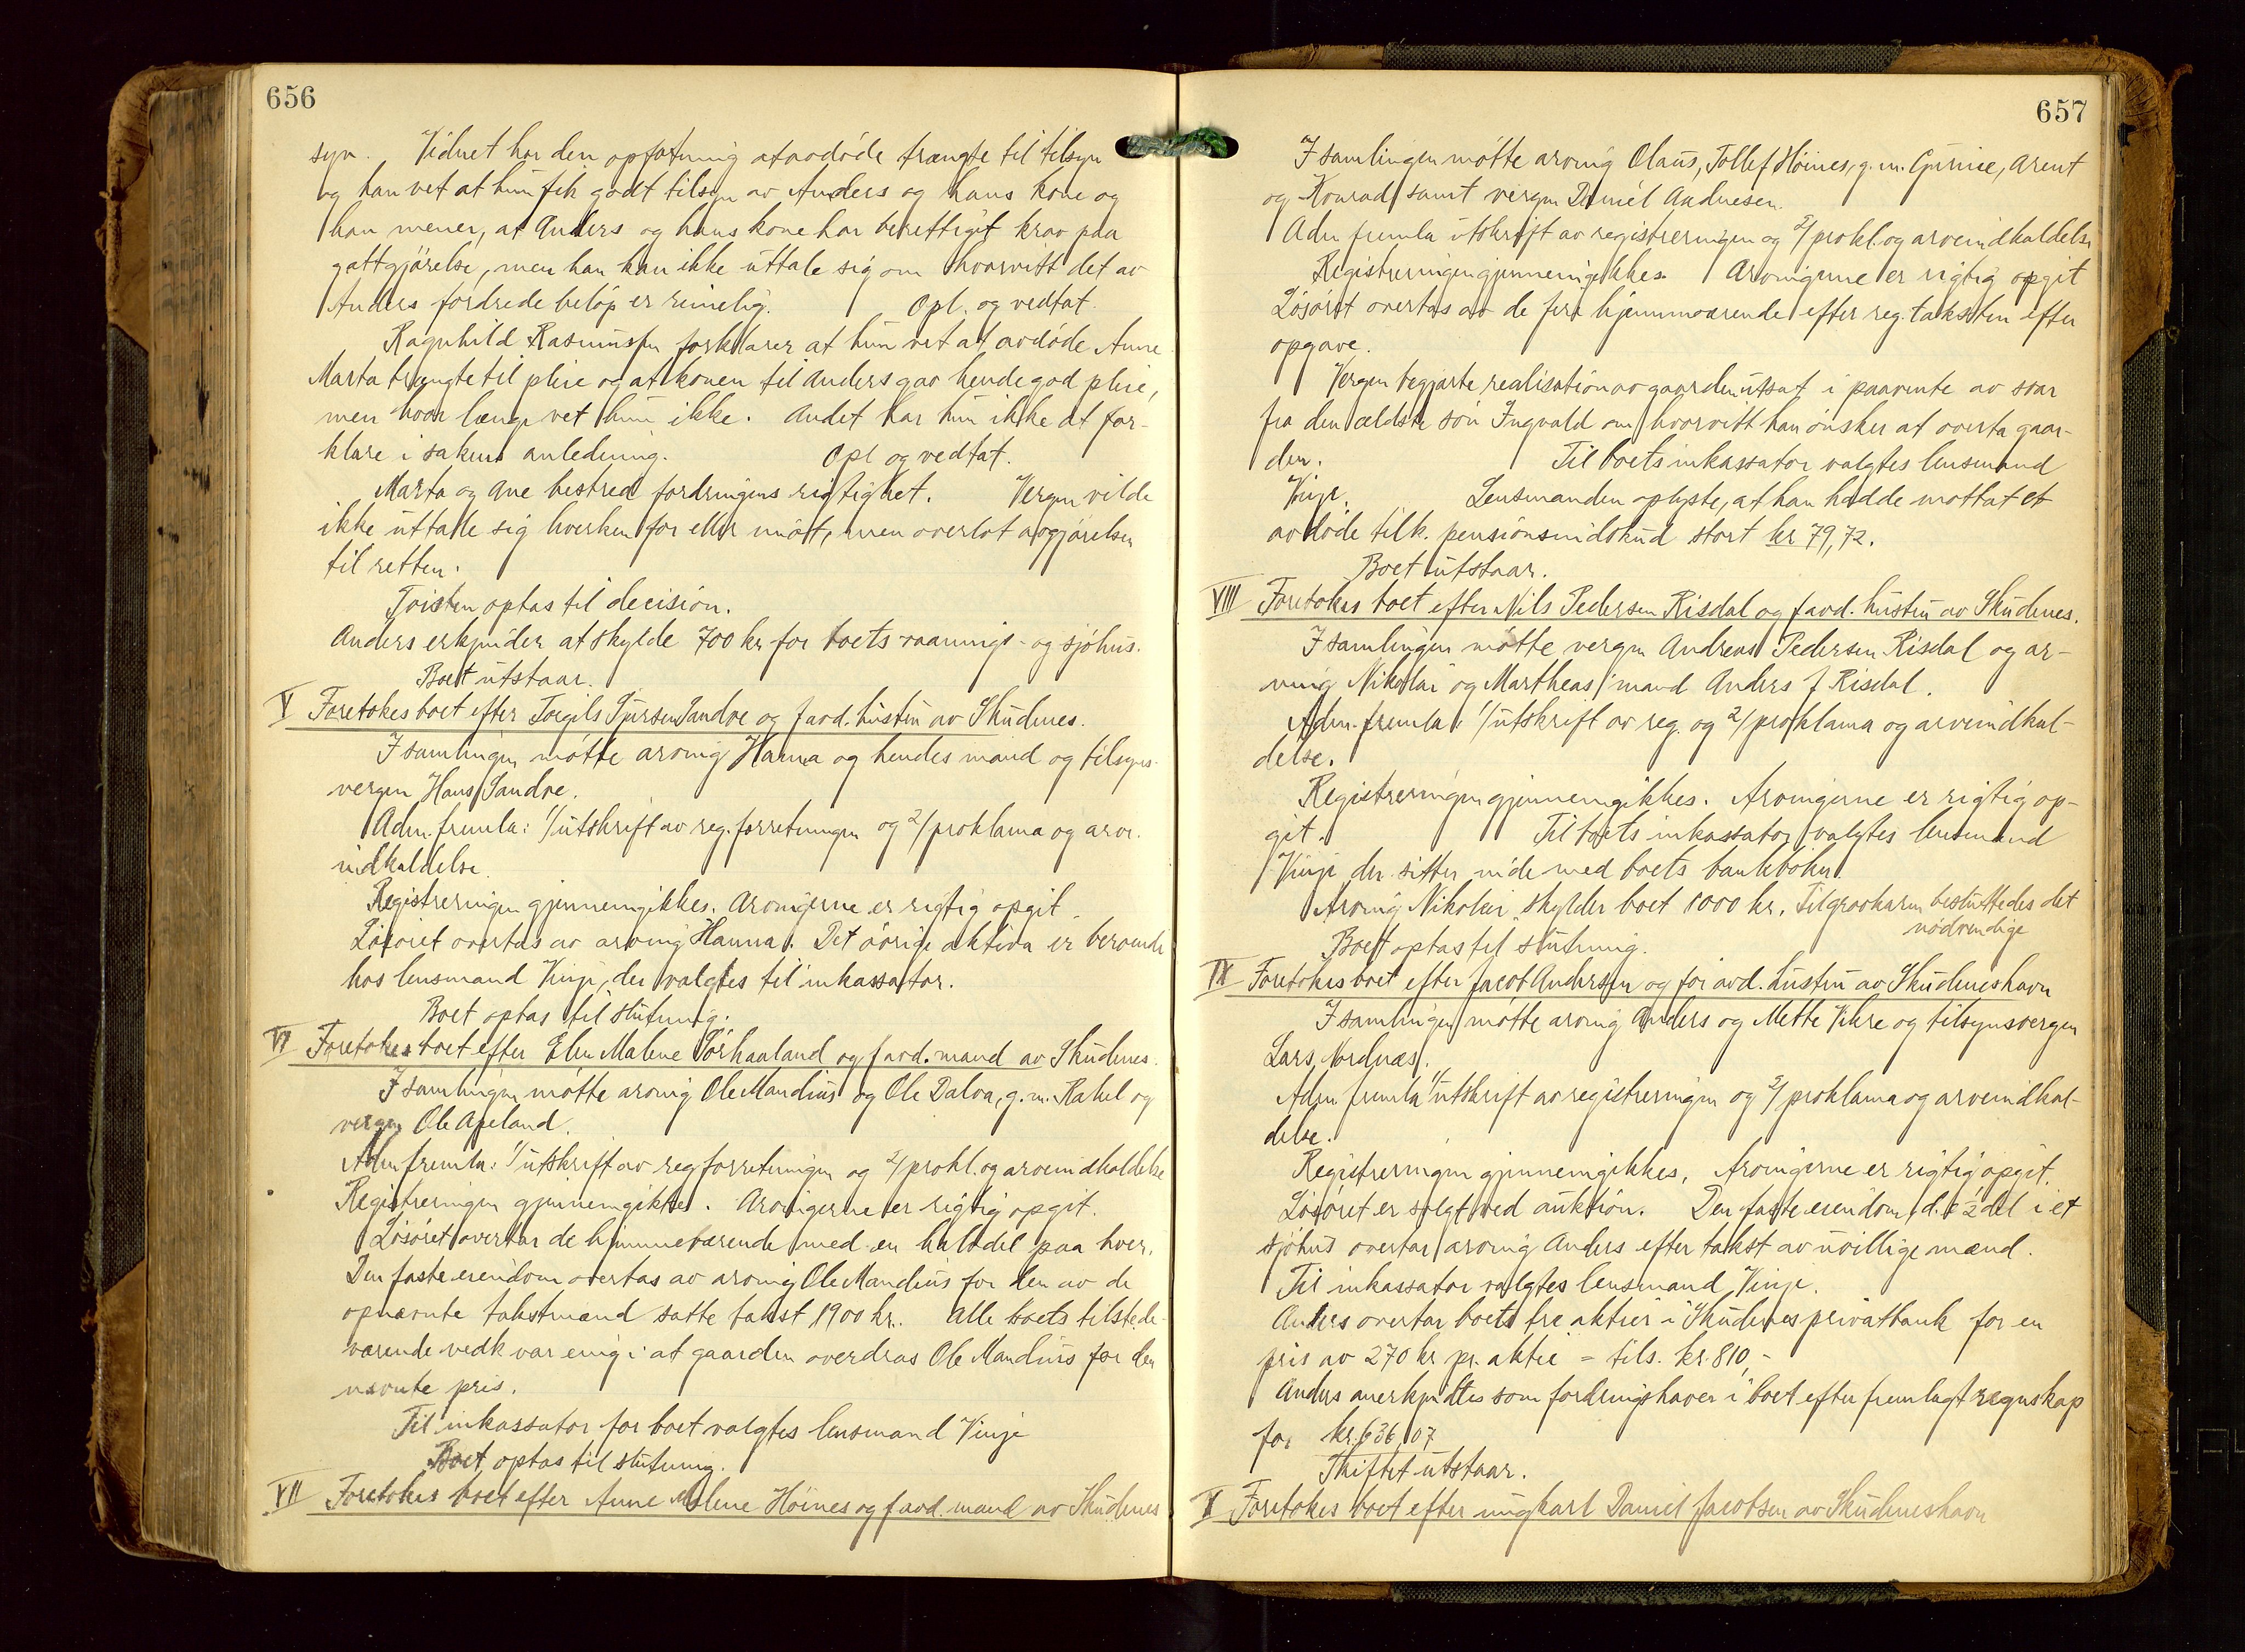 656
syn. Vidnet har den opfatning at avdøde trængte til tilsyn
og han vet at hun fik godt tilsyn av Anders og hans kone og
han mener, at Anders og hans kone har berettiget krav paa
gottgjørelse, men han kan ikke uttale sig om hvorvitt det av
Anders fordrede beløp er rimelig. Opl. og vedtat.
Ragnhild Rasmussen forklarer at hun vet at avdøde Anne
Marta trængte til pleie og at konen til Anders gav hende god pleie,
men hvor længe vet hun ikke. Andet har hun ikke at for-
klare i sakens anledning. Opl og vedtat.
Marta og Ane bestred fordringens rigtighet. Vergen vilde
ikke uttale sig hverken for eller imot, men overlot avgjørelsen
til retten.
Tvisten optas til decision.
Anders erkjender at skylde 700 kr for boets vaanings- og sjøhus.
Boet utstaar.
V Foretokes boet efter Torgils Sjursen Sandve og f. avd. hustru av Skudenes.
I samlingen møtte arving Hanna og hendes mand og tilsyns-
vergen Hans Sandve.
Adm. fremla: 1/ utskrift av reg. forretningen og 2/ proklama og arve-
indkaldelse.
Registreringen gjennemgikkes. Arvingerne er rigtig opgit.
Løsøret overtas av arving Hanna. Det øvrige aktiva er beroende
hos lensmand Vinje, der valgtes til inkassator.
Boet optas til slutning.
VI Foretokes boet efter Elen Malene Sørhaaland og f. avd. mand av Skudenes.
I samlingen møtte arving Ole Mandius og Ole Dalva, g. m. Rakel og
vergen Ole Apeland.
Adm fremla: 1/ utskrift av reg forretningen og 2/ prokl. og arveindkaldelse
Registreringen gjennemgikkes. Arvingerne er rigtig opgit.
Løsøret overtar de hjemmeværende med en halvdel paa hver.
Den faste eiendom overtas av arving Ole Mandius for den av de
opnævnte takstmænd satte takst 1900 kr. Alle boets tilstede-
værende vedk var enig i at gaarden overdras Ole Mandius for den
nævnte pris.
Til inkassator for boet valgtes lensmand Vinje
Boet optas til slutning.
VII Foretokes boet efter Anne Malene Høines og f. avd. mand av Skudenes
657
I samlingen møtte arving Olaus, Tollef Høines, g. m. Gurine, Arent
og Konrad samt vergen Daniel Andresen.
Adm fremla utskrift av registreringen og 2/ prokl. og arveindkaldelse
Registreringen gjennemgikkes. Arvingerne er rigtig opgit
Løsøret overtas av de fire hjemmeværende efter reg. taksten efter
opgave.
Vergen begjærte realisation av gaarden utsat i paavente av svar
fra den ældste søn Ingvald om hvorvitt han ønsker at overta gaar-
den. Til boets inkassator valgtes lensmand
Vinje. Lensmanden oplyste, at han hadde mottat et
avdøde tilk. pensionsindskud stort kr 79,72.
Boet utstaar.
VIII Foretokes boet efter Nils Pedersen Risdal og f. avd. hustru av Skudenes.
I samlingen møtte vergen Andreas Pedersen Risdal og ar-
ving Nikolai og Martheas mand Anders J Risdal.
Adm. fremla: 1/ utskrift av reg. og 2/ proklama og arveindkal-
delse.
Registreringen gjennemgikkes. Arvingerne er rigtig op-
git. Til boets inkassator valgtes lensmand
Vinje der sitter inde med boets bankbøker.
Arving Nikolai skylder boet 1000 kr. Til gravkarm besluttedes det
nødvendige
Boet optas til slutning.
IX Foretokes boet efter Jacob Andersen og før avd. hustru av Skudeneshavn
I samlingen møtte arving Anders og Mette Vikre og tilsynsvergen
Lars Nordnæs.
Adm. fremla 1/ utskrift av registreringen og 2/ proklama og arveindkal-
delse.
Registreringen gjennemgikkes. Arvingerne er rigtig opgit.
Løsøret er solgt ved auktion. Den faste eiendom, d. e ½ del i et
sjøhus overtar arving Anders efter takst av uvillige mænd.
Til inkassator valgtes lensmand Vinje.
Anders overtar boets tre aktier i Skudenes privatbank for en
pris av 270 kr pr. aktie = tils. kr. 810,-
Anders anerkjendtes som fordringshaver i boet efter fremlagt regnskap
for kr. 636,07
Skiftet utstaar.
X Foretokes boet efter ungkarl Daniel Jacobsen av Skudeneshavn